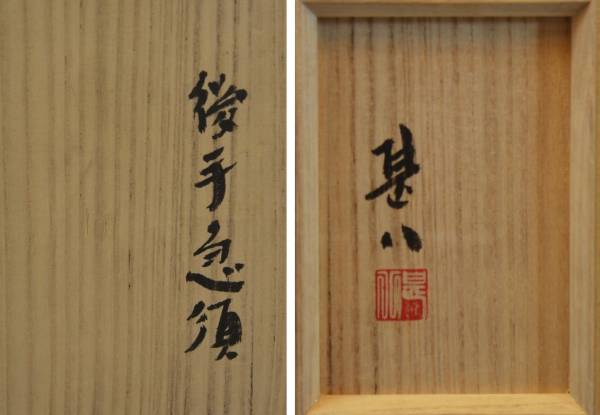 後手急須
甚八